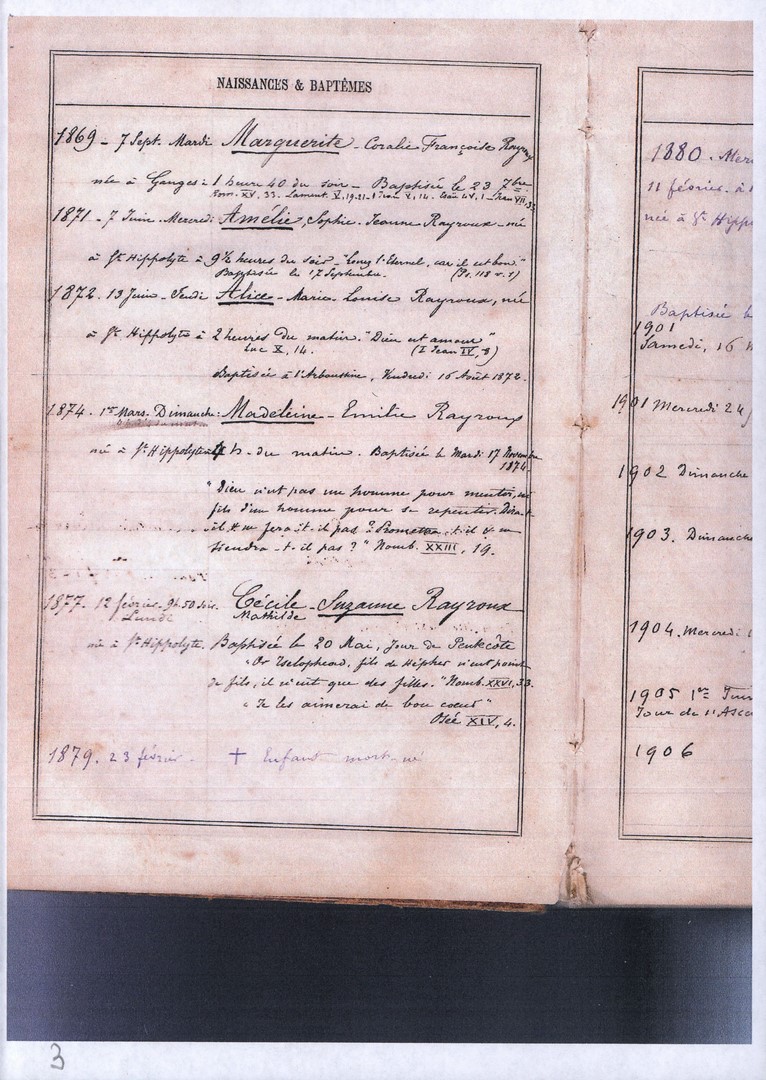 NAISSANCES & BAPTÊMES
1869 - 7 Sept. Mardi Marguerite - Coralie Françoise Rayroux
née à Ganges à 1 heure 40 du soir - Baptisée le 23 7bre
Rom. XV, 33. Lament. V, 19.21 - 1 Jean V, 14. Jean IV, 1 - Jean VII, 37
1871 - 7 Juin - Mercredi Amélie, Sophie - Jeanne Rayroux - née
à St Hippolyte à 9½ heures du soir - "Louez l'Eternel, car il est bon."
Baptisée le 17 Septembre. (Ps. 118 v. 1)
1872. 13 Juin - Jeudi Alice - Marie - Louise Rayroux, née
à St Hippolyte à 2 heures du matin. "Dieu est amour"
Luc X, 14. (I Jean IV, 8)
Baptisée à l'Arboustine, Vendredi 16 Août 1872.
1874. 1er Mars. Dimanche: Madeleine - Emilie Rayroux
née à St Hippolyte à 4 h. du matin. Baptisée le Mardi 17 Novembre
1874
"Dieu n'est pas un homme pour mentir, ni
fils d'un homme pour se repentir. Dira-t-
il & ne fera-t-il pas? Promettra-t-il & ne
tiendra-t-il pas?" Nomb. XXIII, 19.
1877. 12 février. 9h.50 soir. Cécile - Suzanne Rayroux
Lundi Mathilde
née à St Hippolyte. Baptisée le 20 Mai, Jour de Pentecôte
"Or Tselophcad, fils de Hépher n'eut point
de fils, il n'eut que des filles." Nomb. XXVI, 33.
"Je les aimerai de bon coeur"
Osée XIV, 4.
1879. 23 février - + Enfant mort-né
1880. Mer
11 février. à
née à St Hipp
Baptisée l
1901
Samedi, 16
1901 Mercredi 24
1902 Dimanche
1903. Dimanche
1904. Mercredi
1905 1er Juin
Jour de l'Asce
1906
3